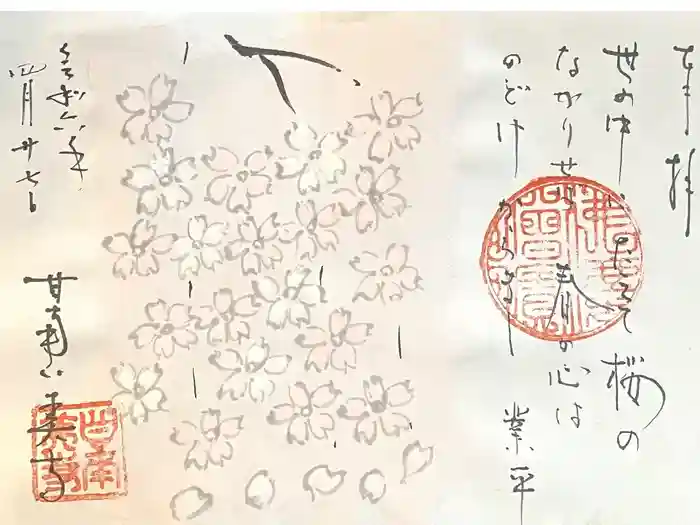 奉拝
世の中にたえて桜の
なかりせば春の心は
のどけからまし 業平
令和六年
四月廿七日
甘南美寺